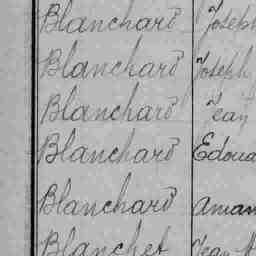 Blanchard Joseph
Blanchard Joseph
Blanchard Jean
Blanchard Edoua
Blanchard Aman
Blanchet Jean